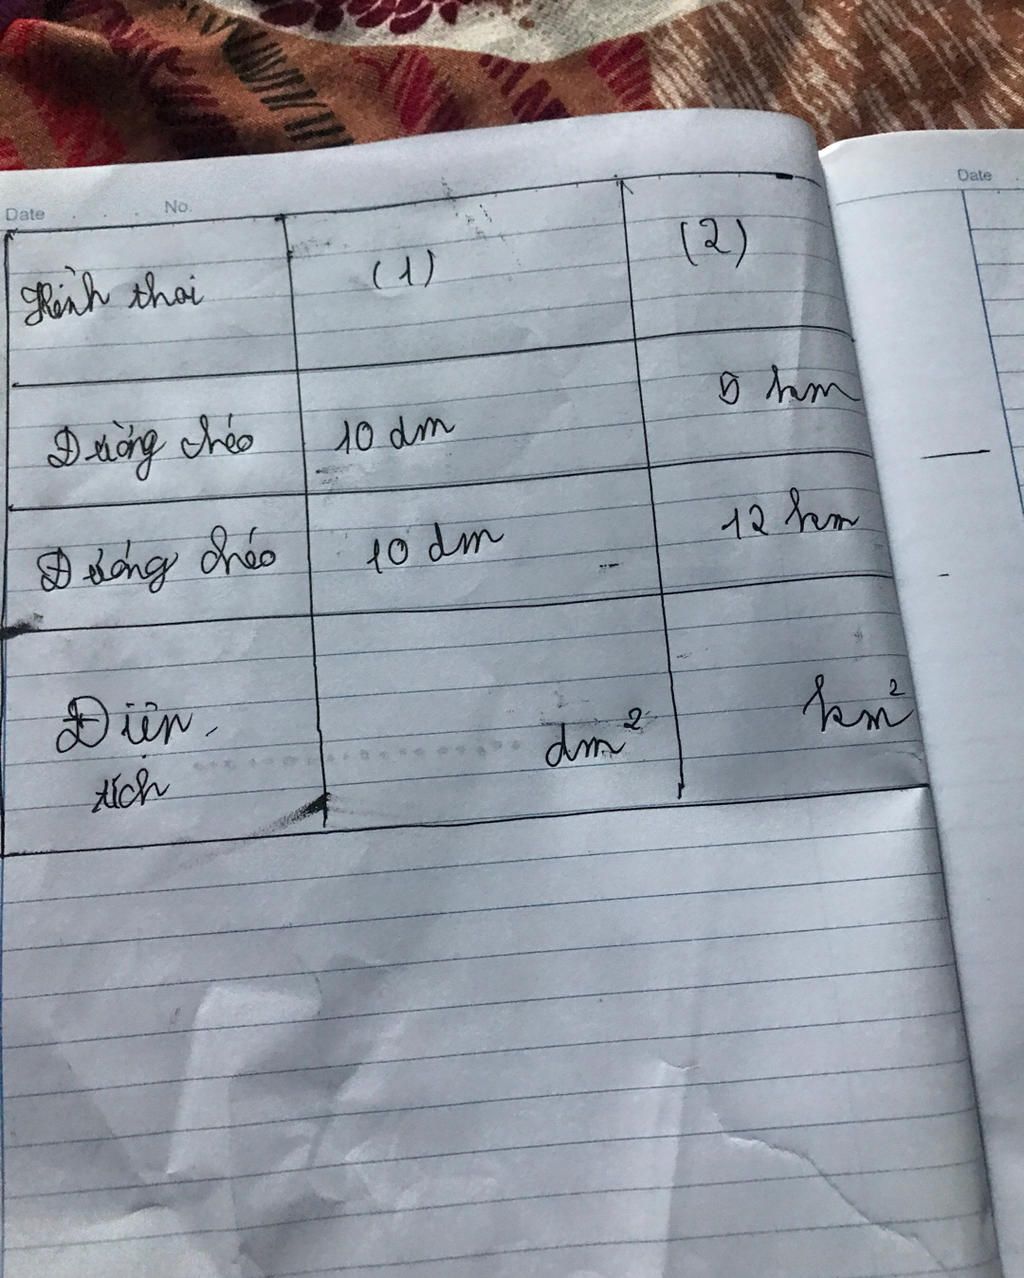 Date No.
Date
Hình thoi (1) (2)
Đường chéo 10 dm 5 km
Đường chéo 10 dm 12 km
Điện dm² km²
tích